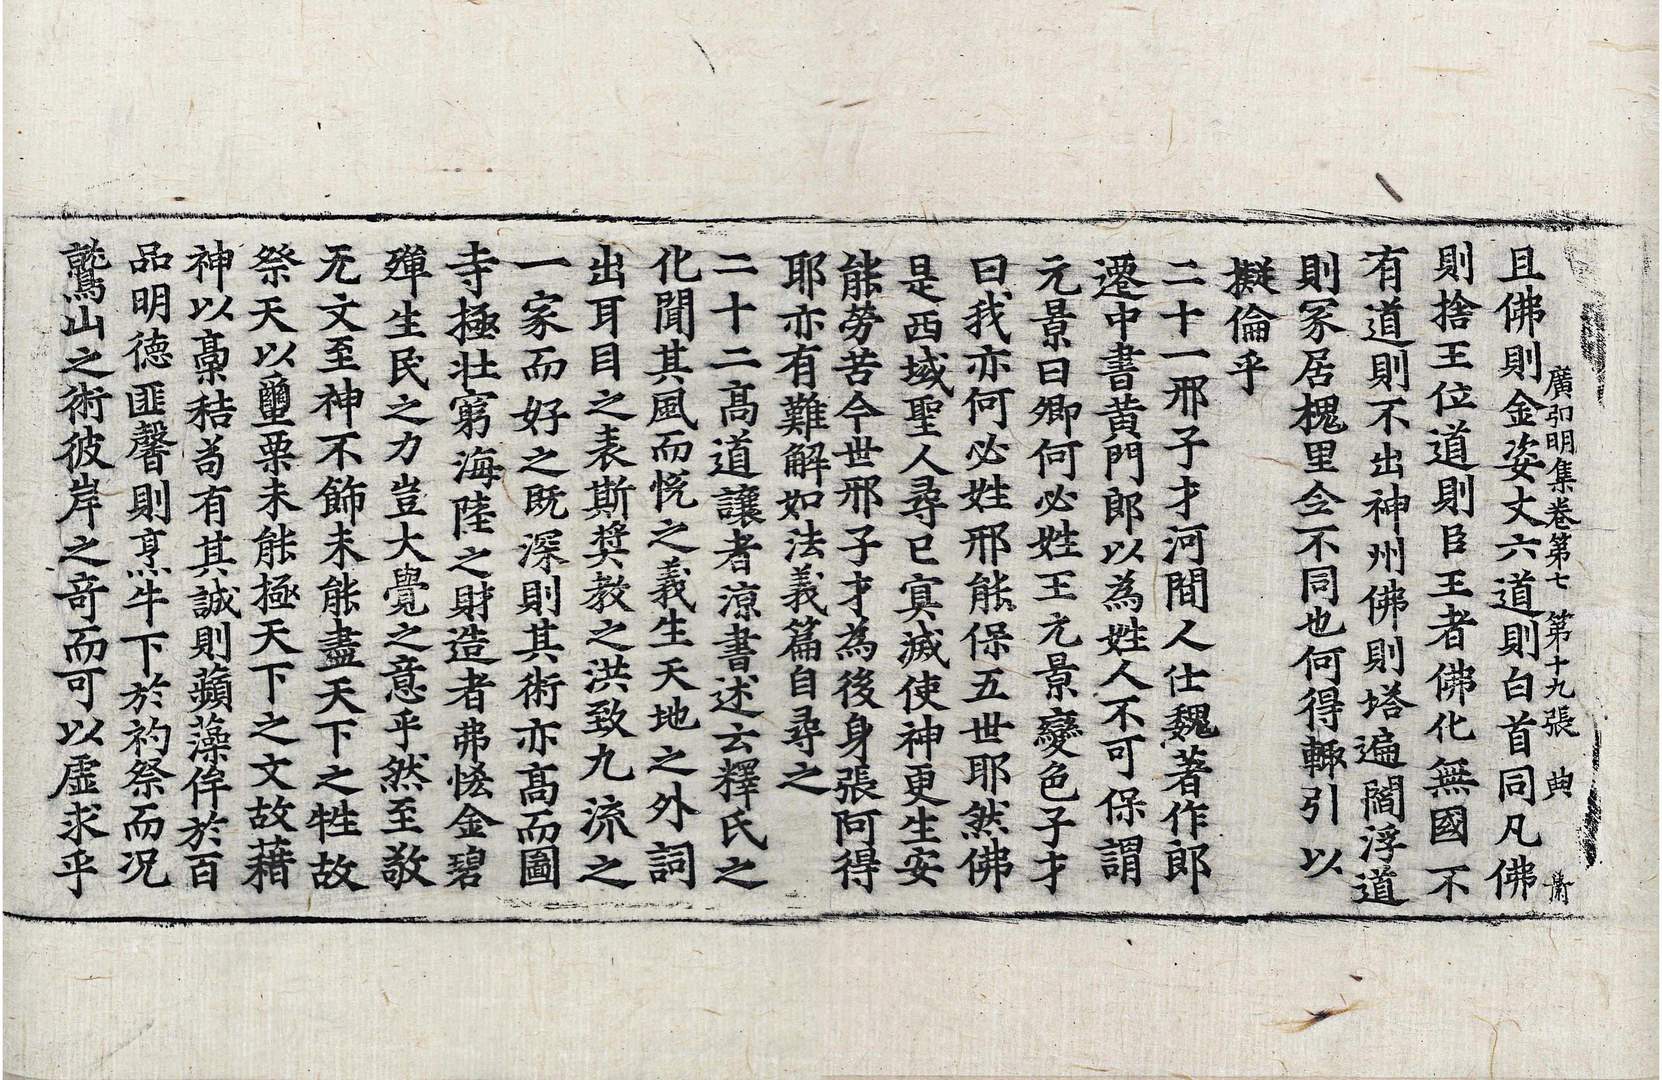 廣弘明集卷第七 第十九張 典
且佛則金姿丈六道則白首同凡佛
則捨王位道則臣王者佛化無國不
有道則不出神州佛則塔遍閻浮道
則冢居槐里今不同也何得輙引以
擬倫乎
二十一邢子才河間人仕魏著作郎
遷中書黄門郎以為姓人不可保謂
元景曰卿何必姓王元景變色子才
曰我亦何必姓邢能保五世耶然佛
是西域聖人尋已寘滅使神更生安
能勞苦今世邢子才為後身張阿得
耶亦有難解如法義篇自尋之
二十二髙道讓者涼書述云釋氏之
化聞其風而恱之義生天地之外詞
出耳目之表斯奨教之洪致九流之
一家而好之既深則其術亦髙而圖
寺極壯窮海陸之財造者弗悋金碧
殫生民之力豈大覺之意乎然至敬
无文至神不飾未能盡天下之牲故
祭天以璽栗未能極天下之文故藉
神以槀秸苟有其誠則蘋藻侔於百
品明德匪馨則烹牛下於礿祭而况
鷲山之術彼岸之竒而可以虛求乎